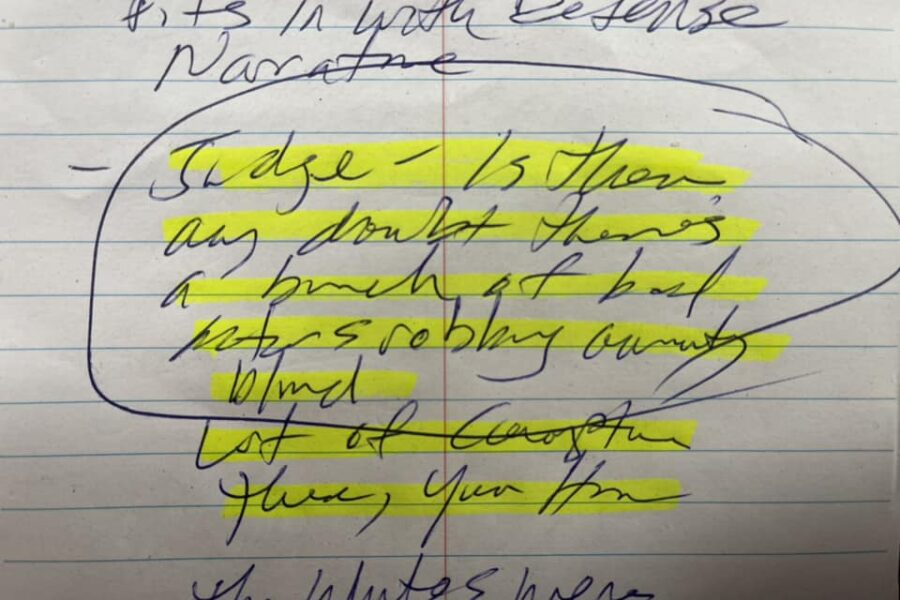 fits in with Defense
Narrative
- Judge - Is there
any doubt there's
a bunch of bad
actors robbing county
blind
Lot of Corruption
there, Your Hon
the Whites were